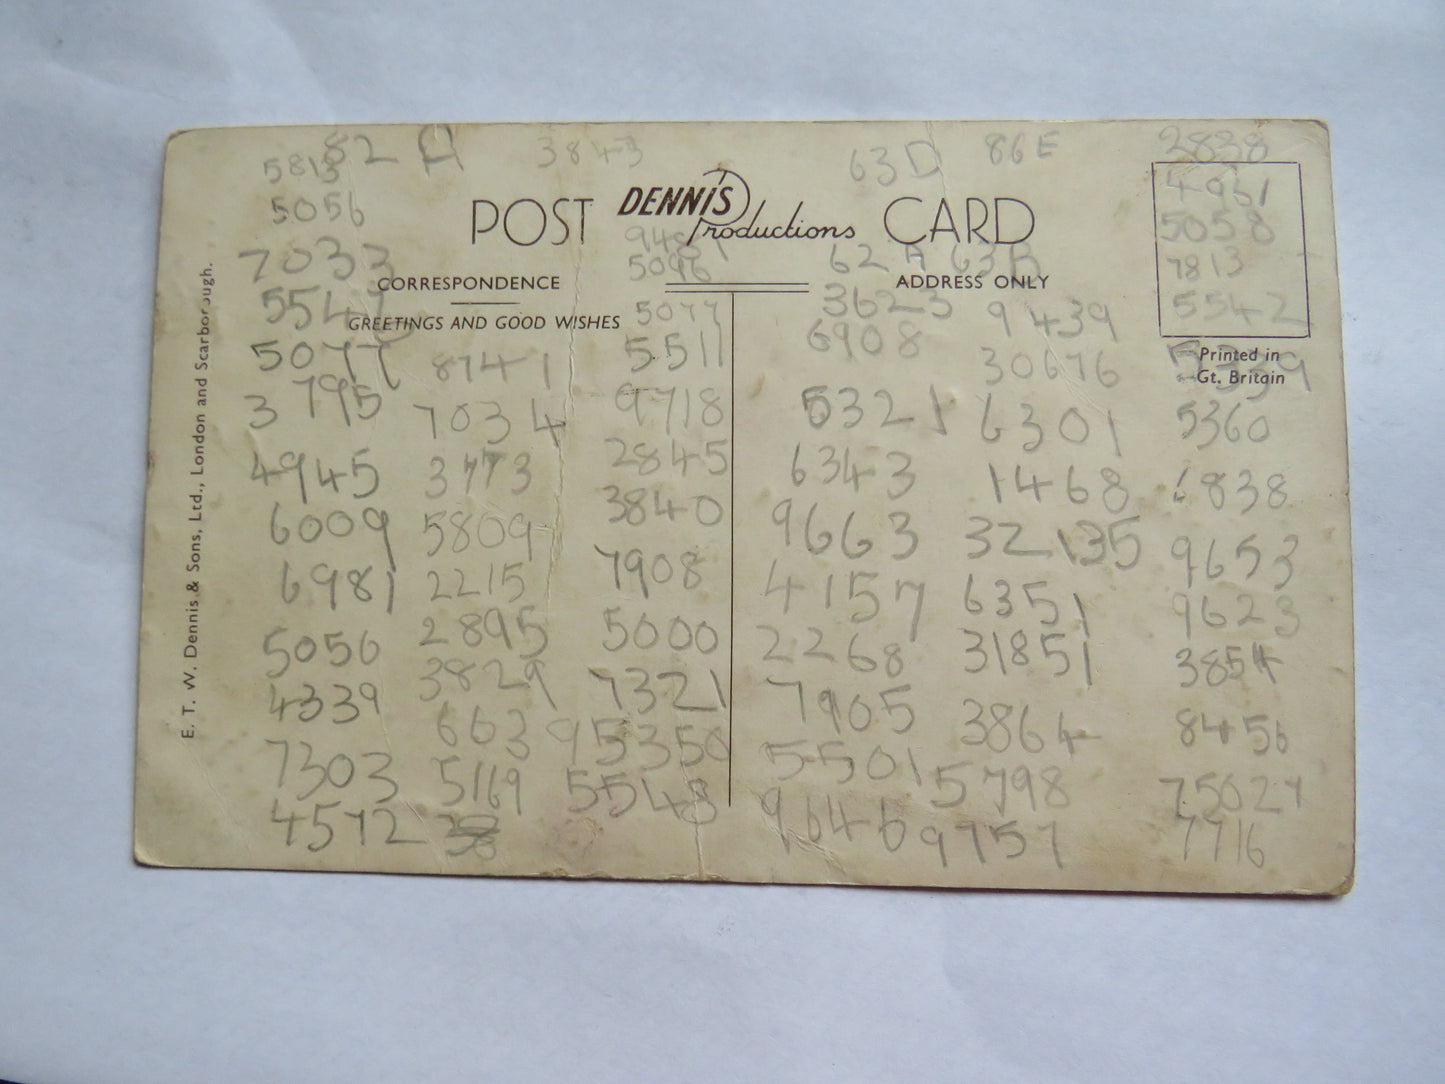 82 A
3843
63D
86E
2838
5813
5056
7033
5547
5077
3795
4945
6009
6981
5056
4339
7303
4572
POST
DENNIS
Productions
CARD
CORRESPONDENCE
GREETINGS AND GOOD WISHES
ADDRESS ONLY
8741
7034
3773
5809
2215
2895
3829
663
5169
9481
5096
5077
5511
9718
2845
3840
7908
5000
7321
95350
5548
62A
63B
3623
6908
5321
6343
9663
4157
2268
7905
5501
9646
9439
30676
6301
1468
32135
6351
31851
3864
5798
9757
4961
5058
7813
5542
Printed in
Gt. Britain
5339
5360
6838
9653
9623
3854
8456
75027
7716
E. T. W. Dennis & Sons, Ltd., London and Scarborough.